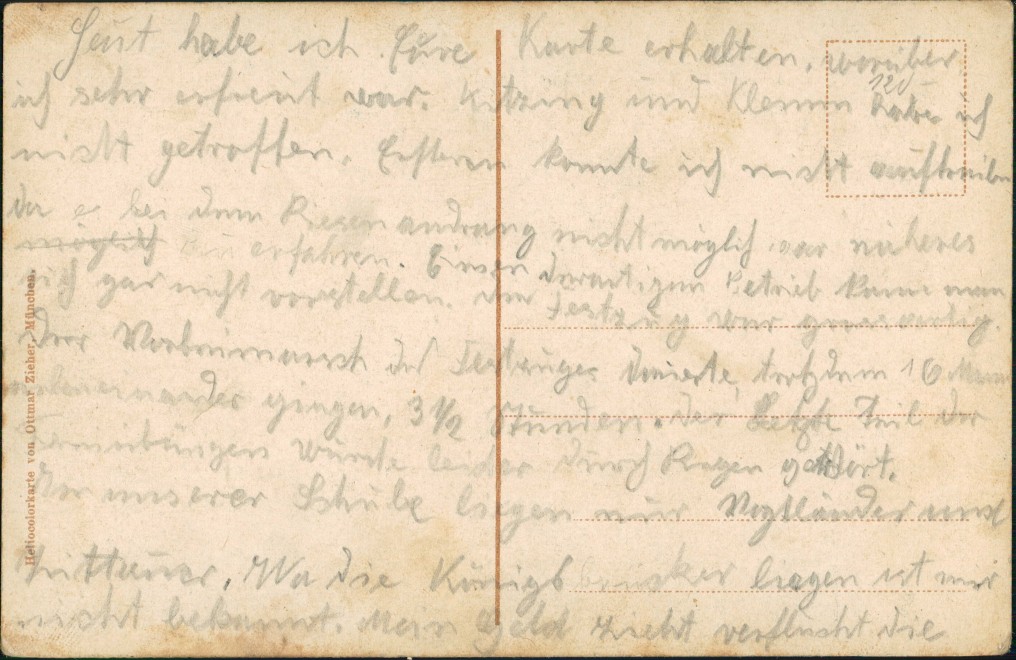 Heut habe ich Eure Karte erhalten, worüber
ich sehr erfreut war. Kitzing und Klemm habe ich
120
nicht getroffen. Ersteren konnte ich nicht auftreiben
da es bei dem Riesenandrang nicht möglich war näheres
möglich zu erfahren. Einen derartigen Betrieb kann man
sich gar nicht vorstellen. Der Festzug war grossartig.
Der Vorbeimarsch des Festzuges dauerte, trotzdem 16 Mann
nebeneinander gingen, 3 1/2 Stunden. Der letzte Teil der
Turnübungen wurde leider durch Regen gestört.
In unserer Schule liegen nur Vogtländer und
Zittauer. Wo die Königsbrücker liegen ist mir
nicht bekannt. Mein Geld zieht verflucht die
Heliocolorkarte von Ottmar Zieher, München.